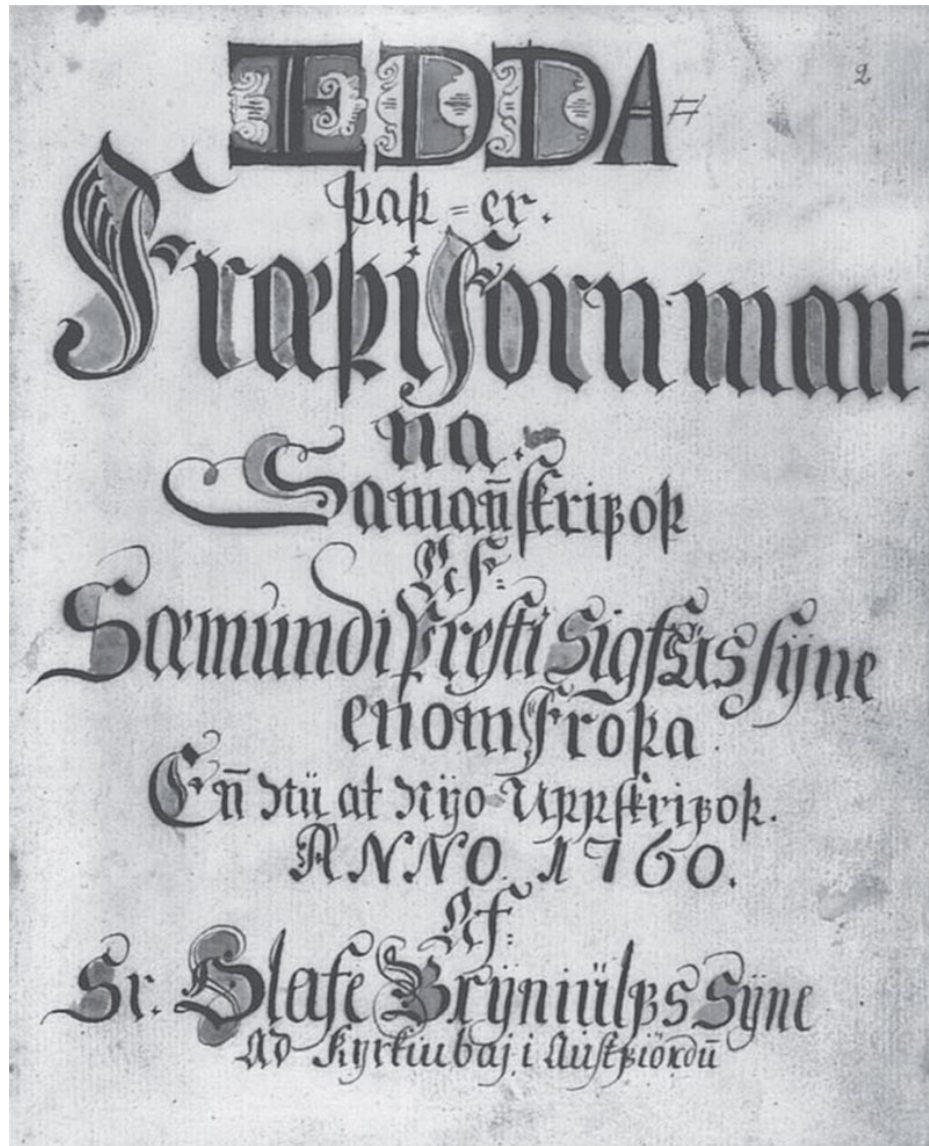 EDDA
2
þaþ = er.
Fræþi Fornman=
na.
Samañſkrifoþ
Af:
Sæmundi Preſti Sigfús ſÿne
enom Froþa
Eñ Nü at Nÿo Uppſkrifoþ.
ANNO. 1760.
Af:
Sr. Olafe Brÿniülfs Sÿne
Ad Kyrkiubaj i Auſtfiördu̅